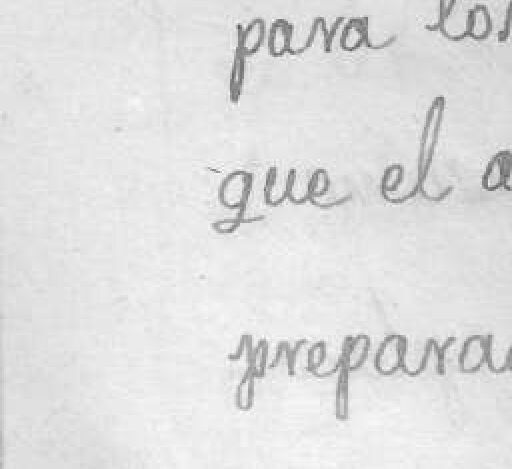 para los
que el a
prepara